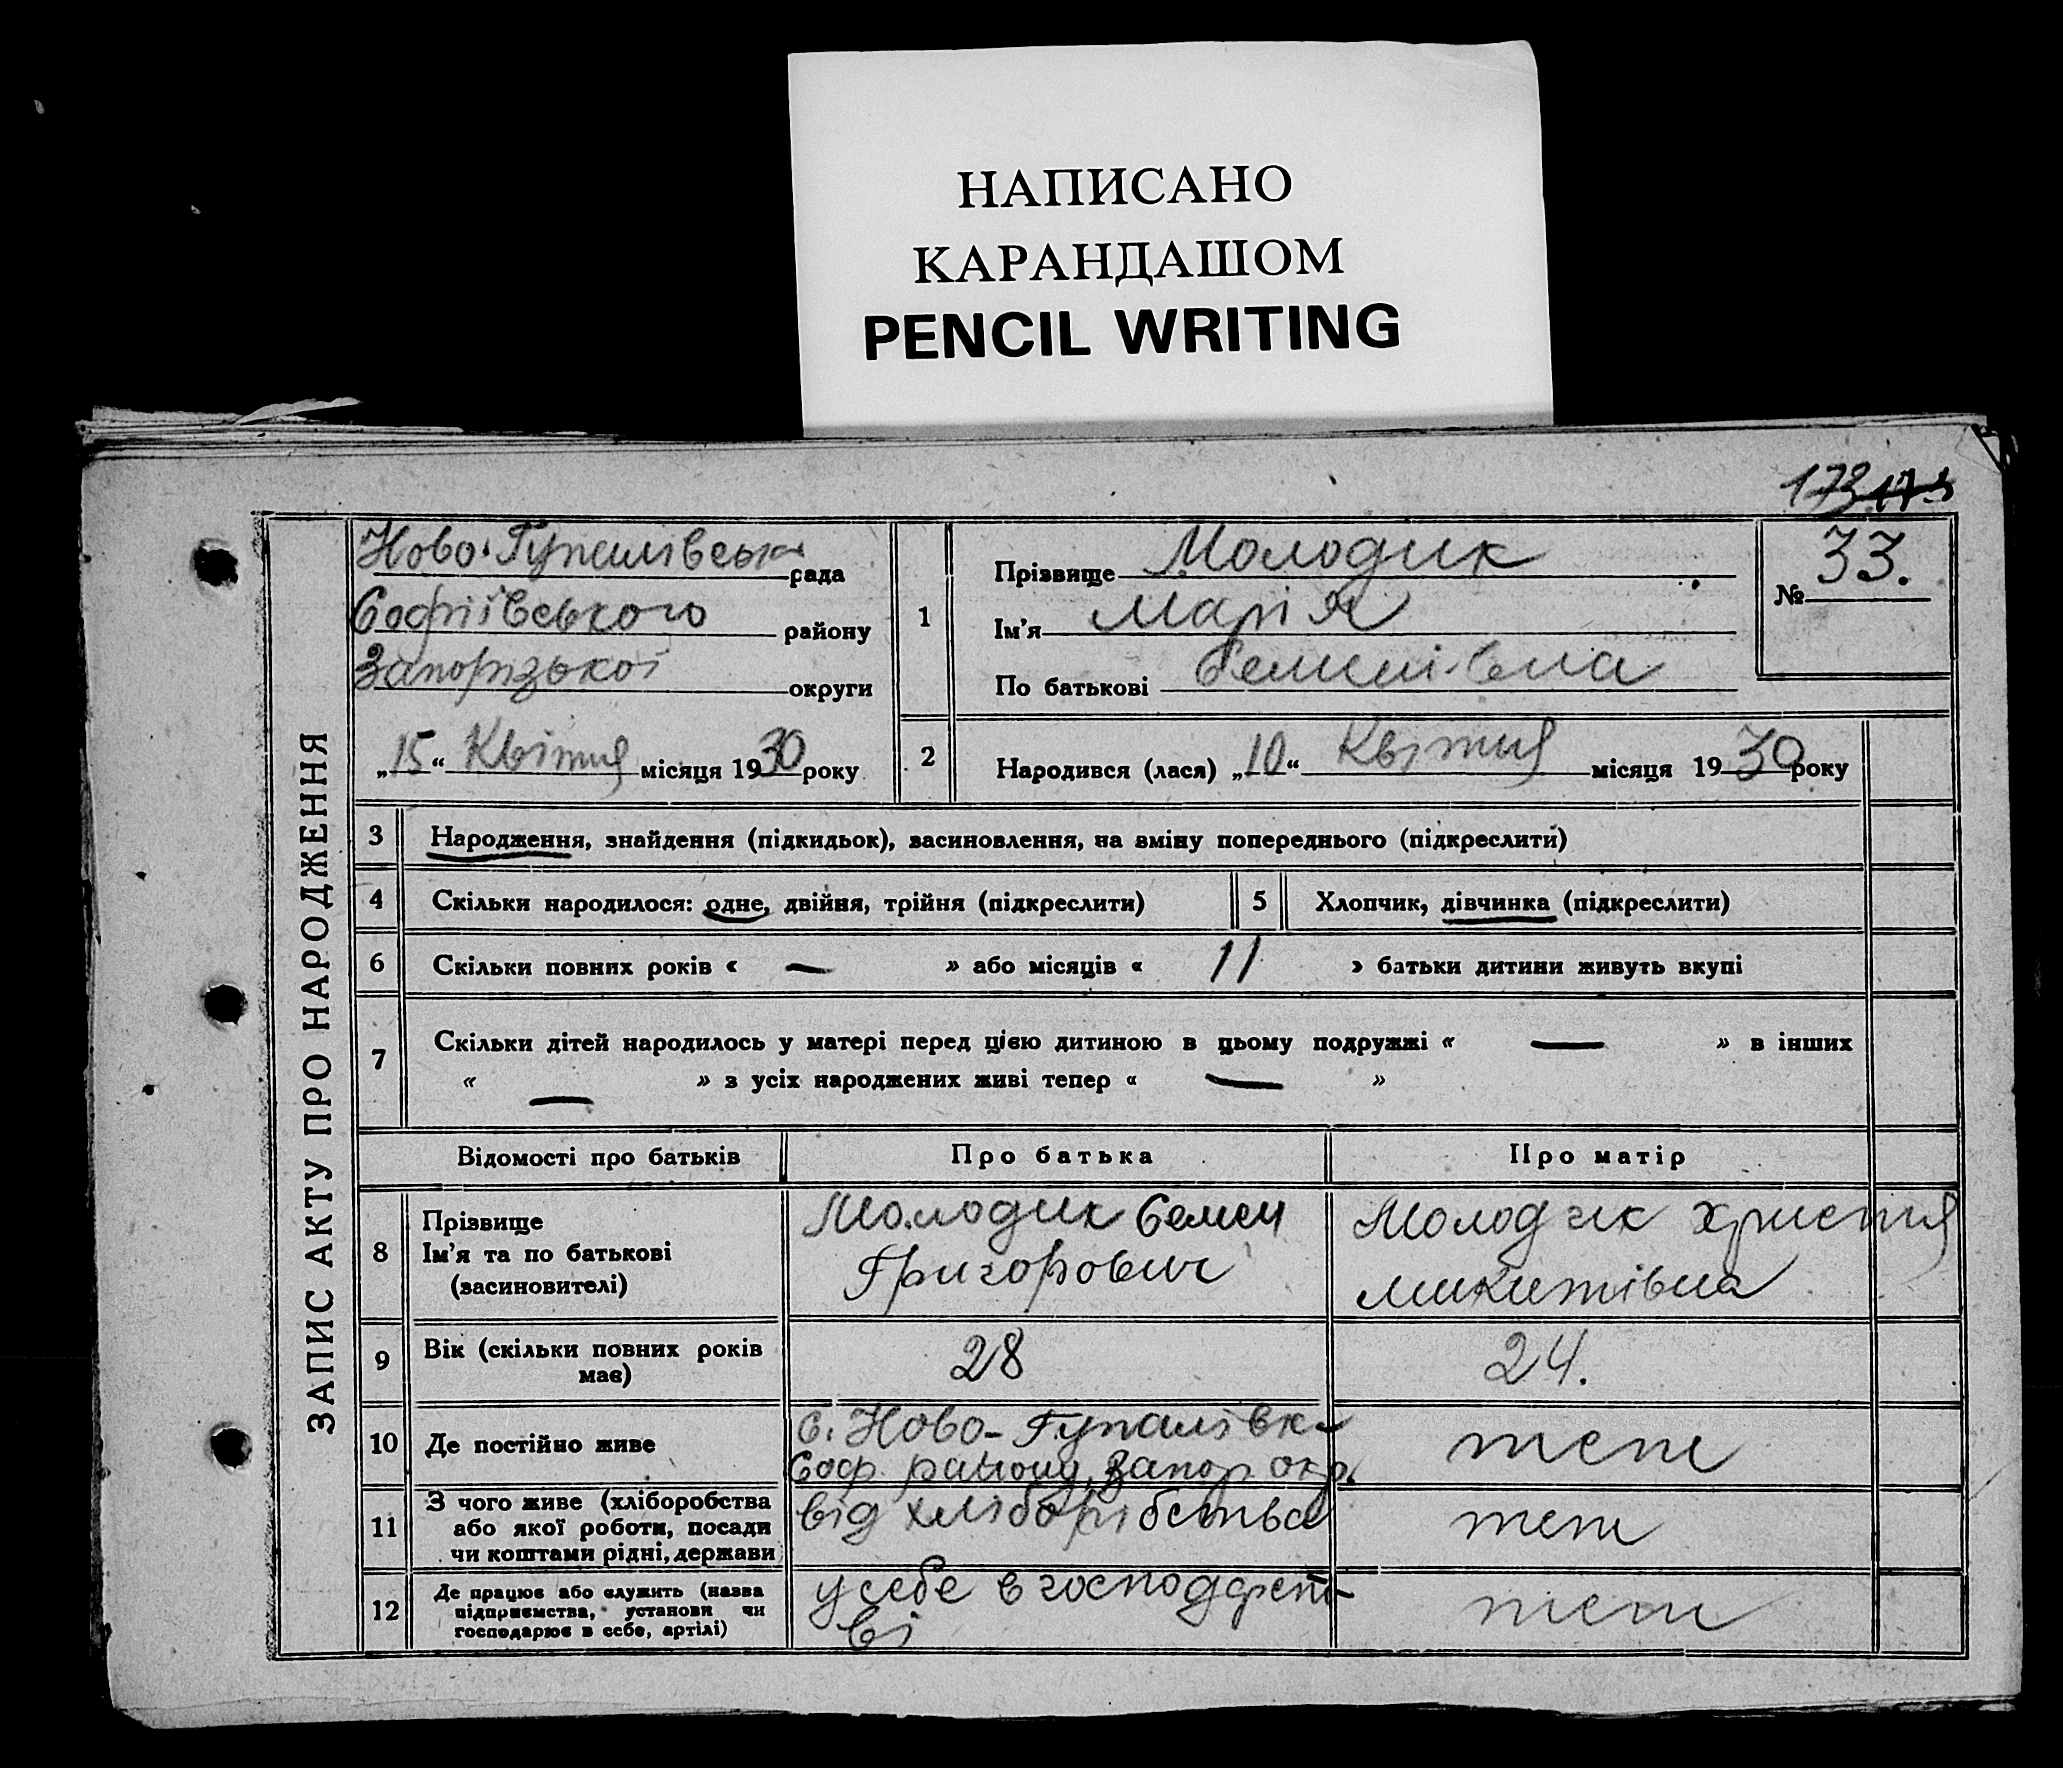 НАПИСАНО
КАРАНДАШОМ
PENCIL WRITING
173 173
ЗАПИС АКТУ ПРО НАРОДЖЕННЯ
Ново-Гупалівська рада
Софіївського району
Запорізької округи
„15“ Квітня місяця 1930 року
1
Прізвище Молодик
Ім'я Марія
По батькові Семенівна
№ 33.
2 Народився (лася) „10“ Квітня місяця 1930 року
3 Народження, знайдення (підкидьок), засиновлення, на зміну попереднього (підкреслити)
4 Скільки народилося: одне, двійня, трійня (підкреслити)
5 Хлопчик, дівчинка (підкреслити)
6 Скільки повних років « — » або місяців « 11 » батьки дитини живуть вкупі
7 Скільки дітей народилось у матері перед цією дитиною в цьому подружжі « — » в інших
« — » з усіх народжених живі тепер « — »
Відомості про батьків
Про батька
Про матір
8
Прізвище
Ім'я та по батькові
(засиновителі)
Молодик Семен
Григорович
Молодчик Христя
Микитівна
9
Вік (скільки повних років
має)
28
24.
10 Де постійно живе
с. Ново-Гупалівка
Соф. району, Запор. окр.
теж
11
З чого живе (хліборобства
або якої роботи, посади
чи коштами рідні, держави
від хліборобства
теж
12
Де працює або служить (назва
підприємства, установи чи
господарює в себе, артілі)
у себе в господарст-
ві
теж